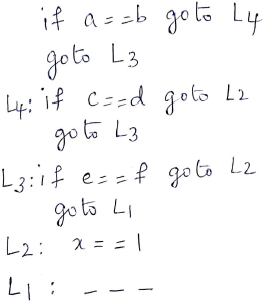 if a==b goto L4
goto L3
L4: if c==d goto L2
goto L3
L3: if e==f goto L2
goto L1
L2: x==1
L1: ---